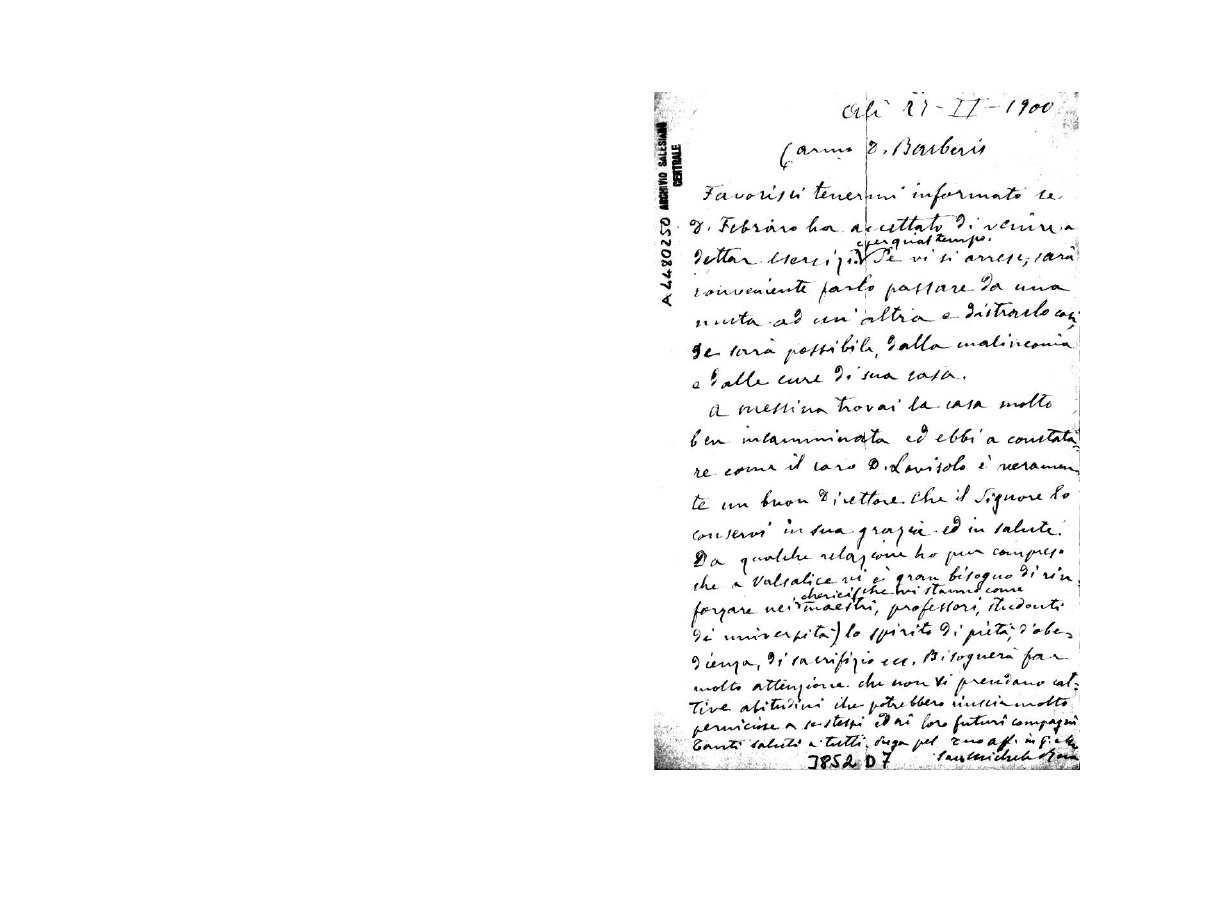 Alì 27-II-1900
Carmo D. Barberis
Favorisci tenermi informato se
D. Febraro ha accettato di venire a
e per qual tempo.
dettar esercizi. Se vi si arrese, sarà
conveniente farlo passare da una
muta ad un'altra e distrarlo così,
se sarà possibile, dalla malinconia
e dalle cure di sua casa.
A Messina trovai la casa molto
ben incamminata ed ebbi a constata-
re come il caro D. Lovisolo è veramen-
te un buon Direttore. Che il Signore lo
conservi in sua grazia ed in salute.
Da qualche relazione ho pur compreso
che a Valsalice vi è gran bisogno di rin-
chierici (che vi stanno come
forzare nei maestri, professori, studenti
di università) lo spirito di pietà, d'obe-
dienza, di sacrifizio ecc. Bisognerà far
molto attenzione che non vi prendano cat-
tive abitudini che potrebbero riuscir molto
perniciose a se stessi ed ai loro futuri compagni
Tanti saluti a tutti. Prega pel tuo aff. in G. e M.
Sac. Michele Rua
3852 D7
ARCHIVIO SALESIANO
CENTRALE
A4480250